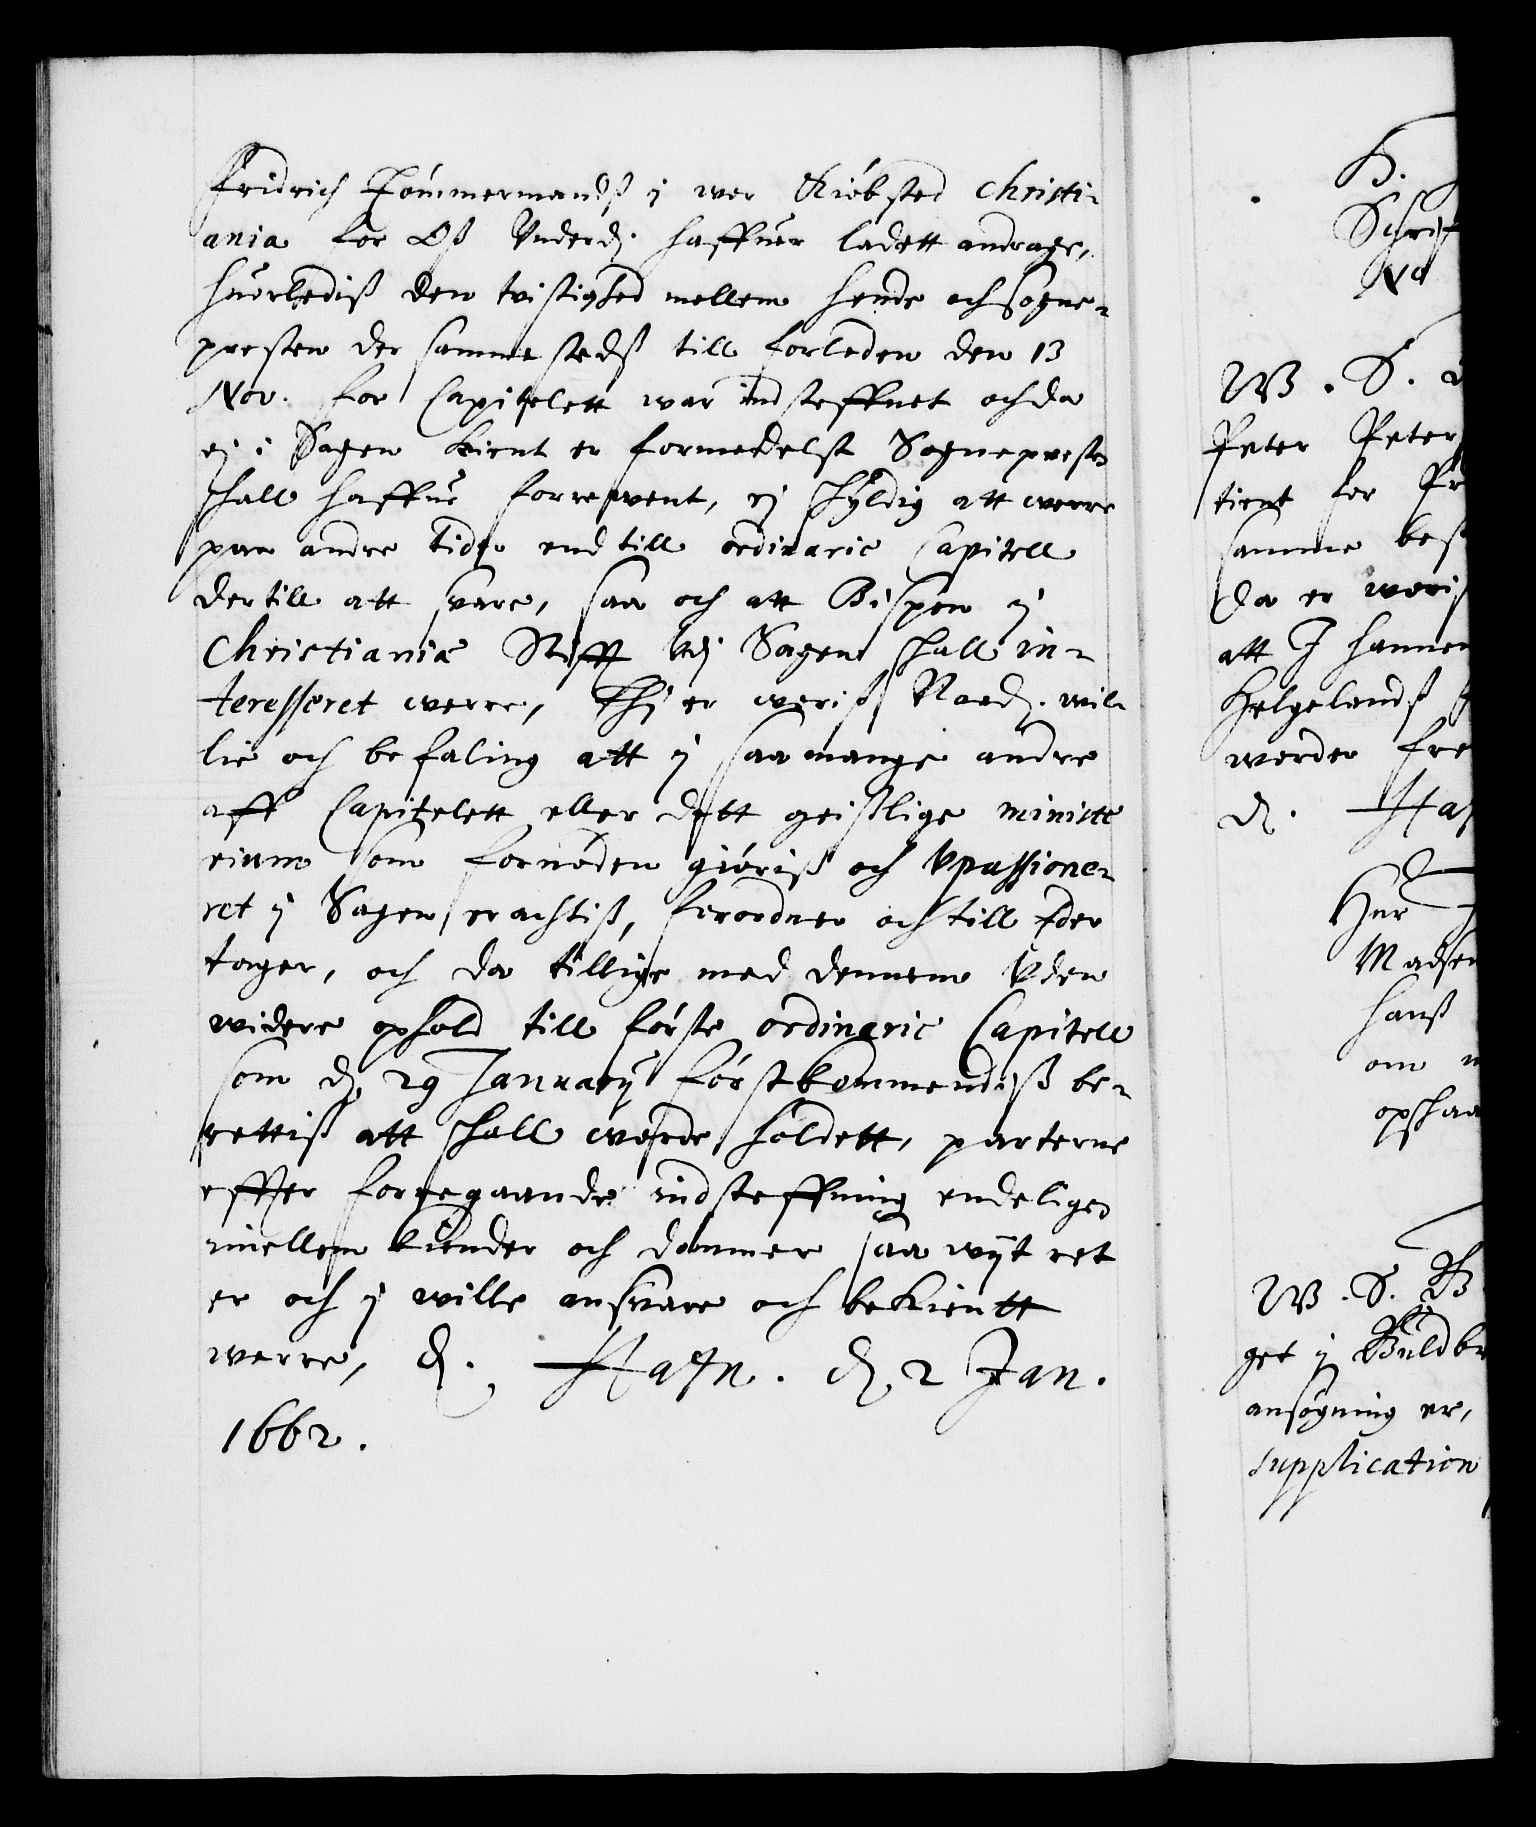 Fridrich Tømmermandß i wor Kiøbsted Christi-
ania for Oß Underd. haffuer ladett andrage,
huorlediß den tvistighed mellem hende och Sogne-
presten der sammestedß till forleden den 13
Nov. for Capitelett war indsteffnet och da
ej i Sagen kient er formedelst Sognepresten
schall haffue forrewent, ej schyldig att werre
paa andre tider end till ordinarie Capitell
dertill att svare, saa och att Bispen i
Christianiæ Stifft udj Sagen schall in-
teresseret werre, Thj er woris Naad. wil-
lie och befaling att i saa mange andre
aff Capitelett eller dett geistlige ministe
rium som fornøden giøris och Upassione-
ret i Sagen erachtiß, forordner och till Eder
tager, och da tillige med dennem Uden
widere ophold till første ordinarie Capitell
som d. 29 Januarij førstkommendiß be-
rettiß att schall worde holdett, parterne
effter foregaaende indsteffning endeligen
imellem kiender och dømmer saa wijt ret
er och i wille ansvare och bekientt
werre, d. Hafn. d. 2 Jan.
1662.
H.
Schrif
No
W. S.
Peter Peter
tient for Pr
samme bes
da er woris
att I hannem
Helgelandß
worder fre
d. Haf
Her
Madsen
hanß
om
opschaa
W. S. B
get i Guldbr
ansøgning er,
supplication